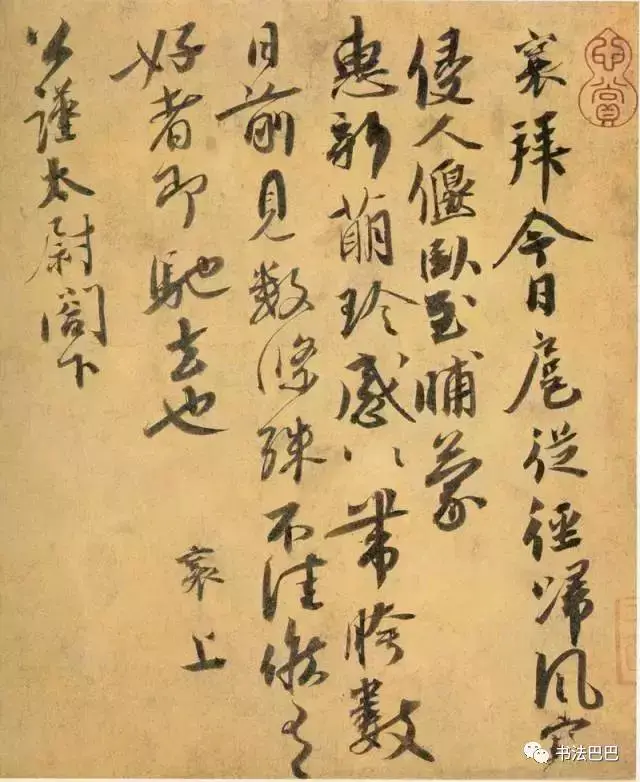 襄拜今日扈從徑歸風寒
侵人偃臥至晡蒙
惠新萠珍感ゝ帶胯數
日前見數條殊不佳候有
好者即馳去也
襄上
公謹太尉閤下
书法巴巴